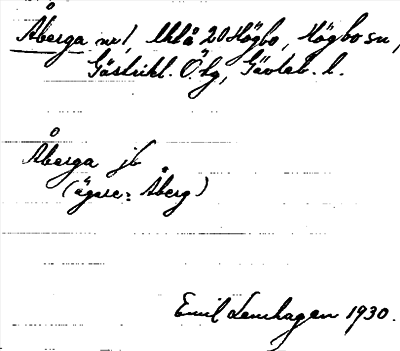 Åberga nr 1, Uhlå 20 Högbo, Högbo sn,
Gästrikl. Ö. tg, Gävleb. l.
Åberga jb
(ägare: Åberg)
Emil Lenhagen 1930.